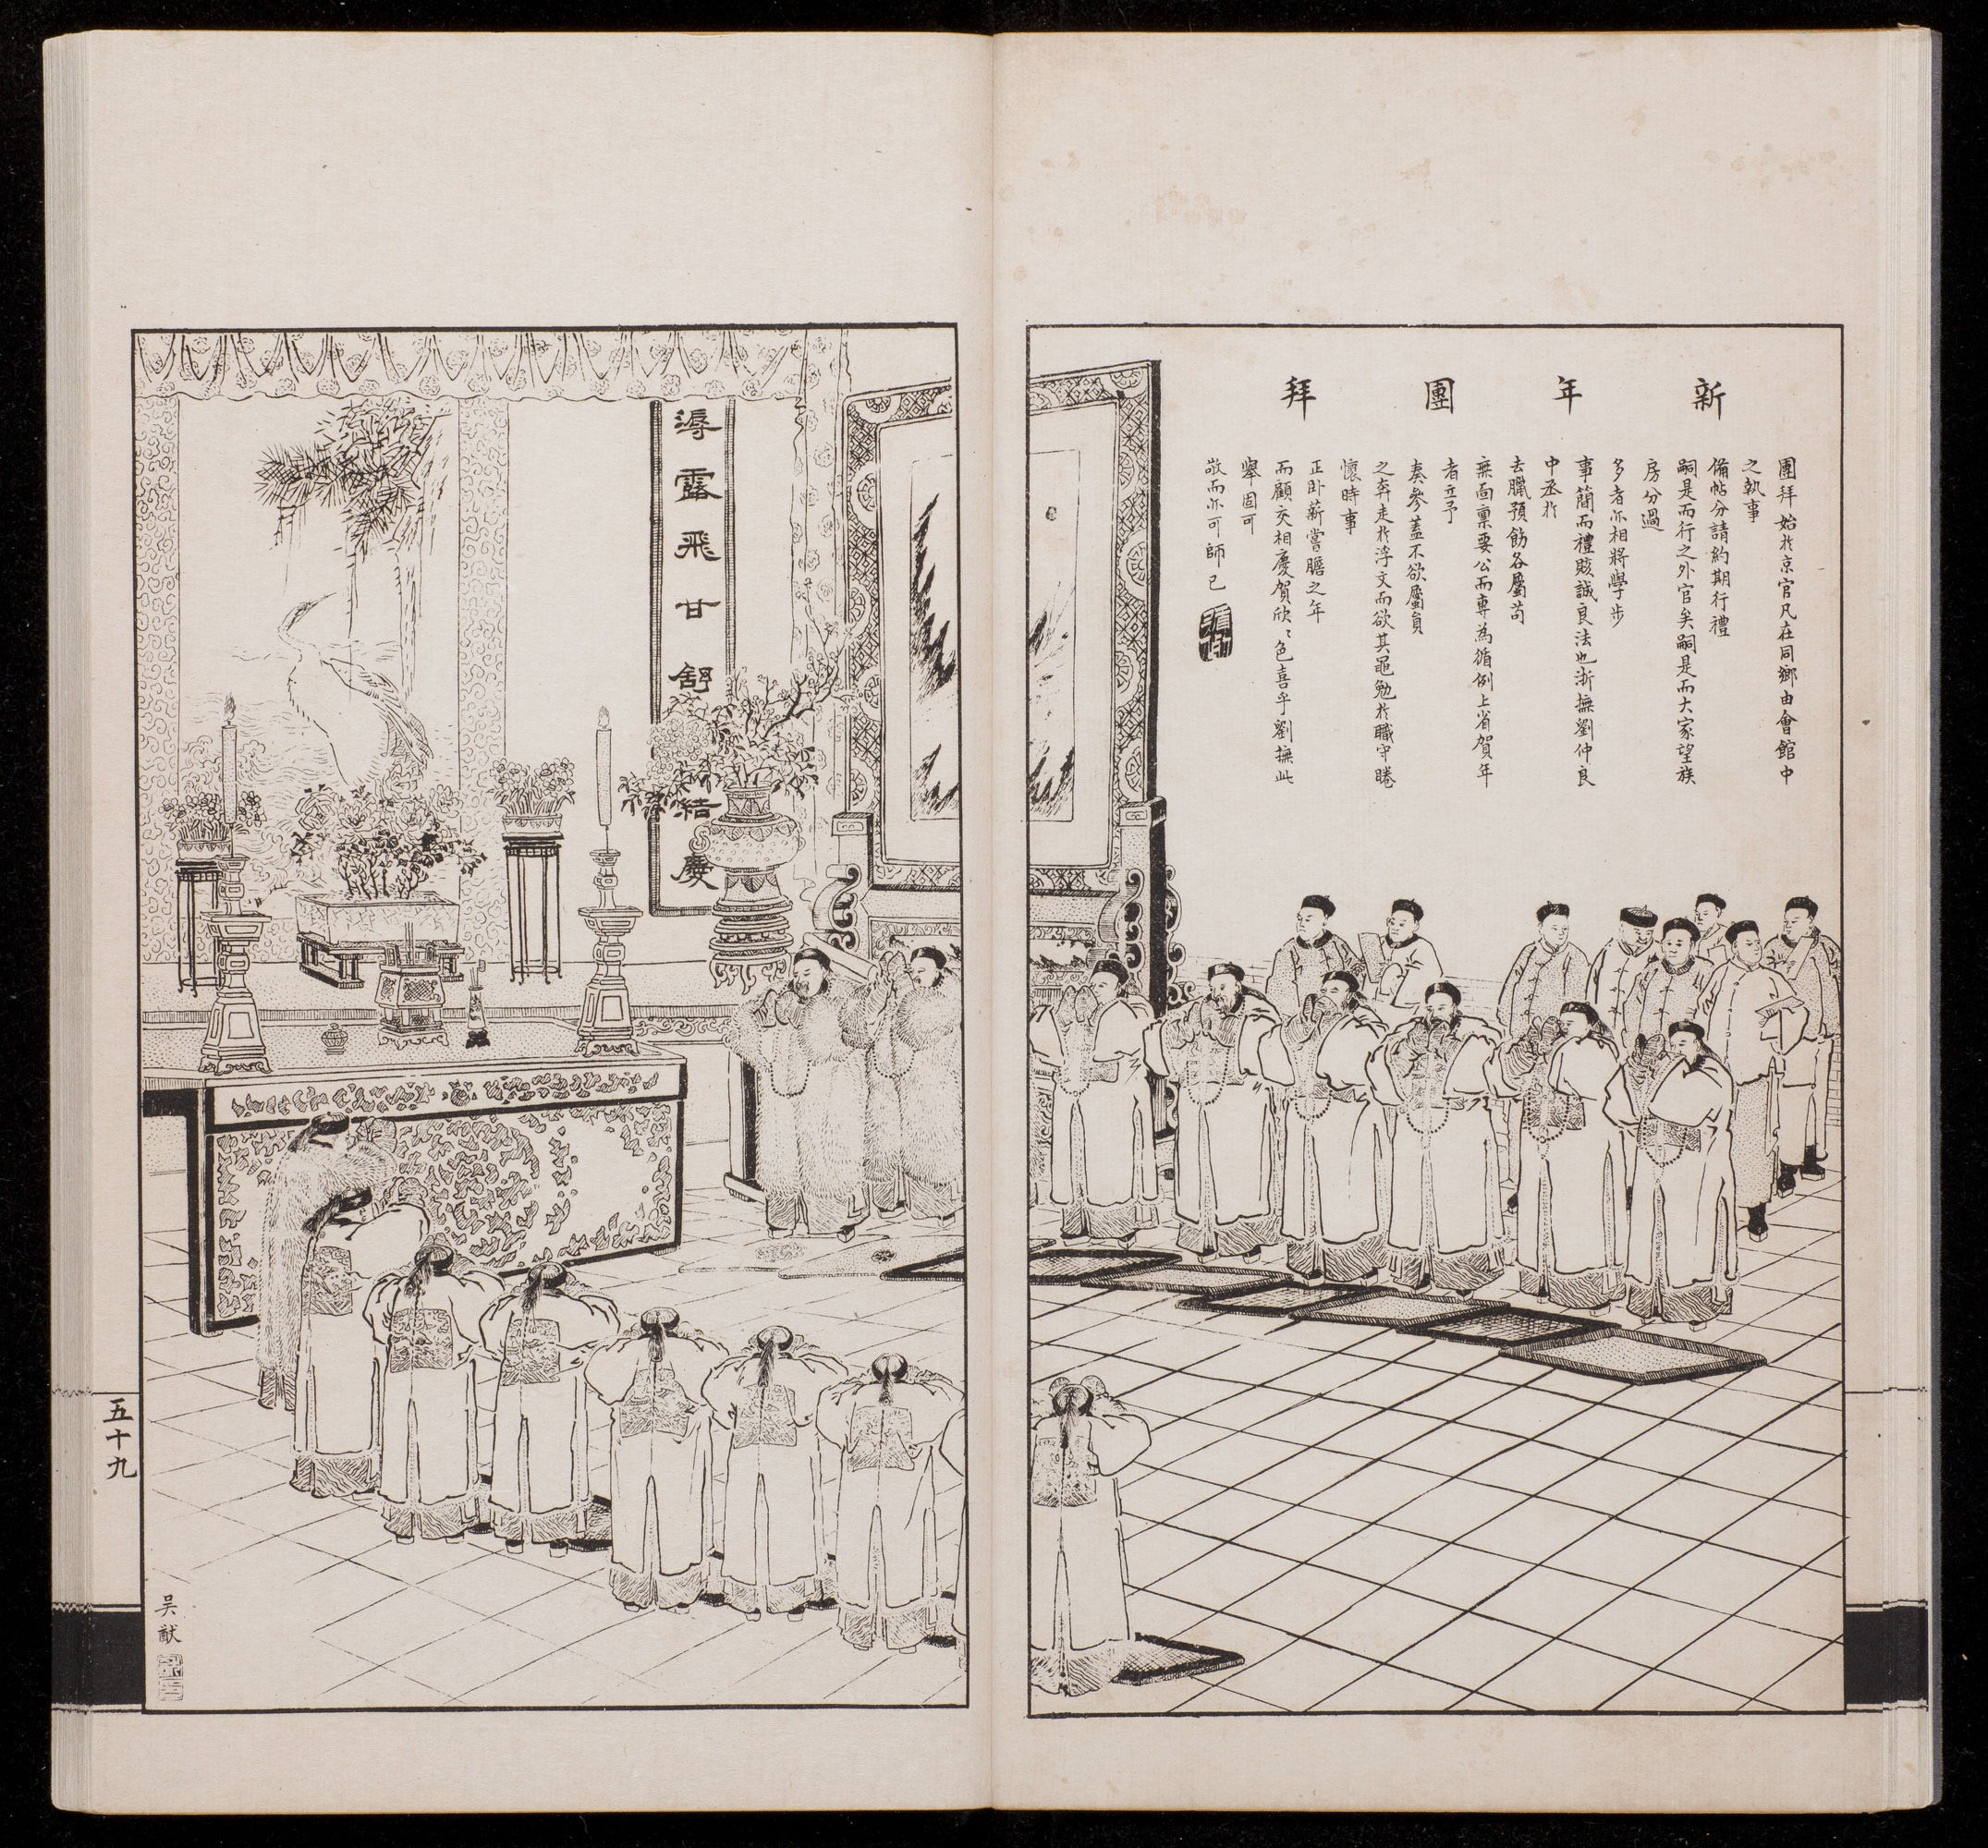 新年團拜
團拜始於京官凡在同鄉由會館中
之執事
備帖分請約期行禮
嗣是而行之外官矣嗣是而大家望族
房分過
多者亦相將學步
事簡而禮賅誠良法也浙撫劉仲良
中丞於
去臘預飭各屬苟
無面稟要公而專為循例上省賀年
者立予
奏參蓋不欲屬員
之奔走於浮文而欲其黽勉於職守睠
懷時事
正臥薪嘗膽之年
而顧交相慶賀欣〻色喜乎劉撫此
舉固可
敬而亦可師已
露飛甘舒結慶
五十九
吴猷